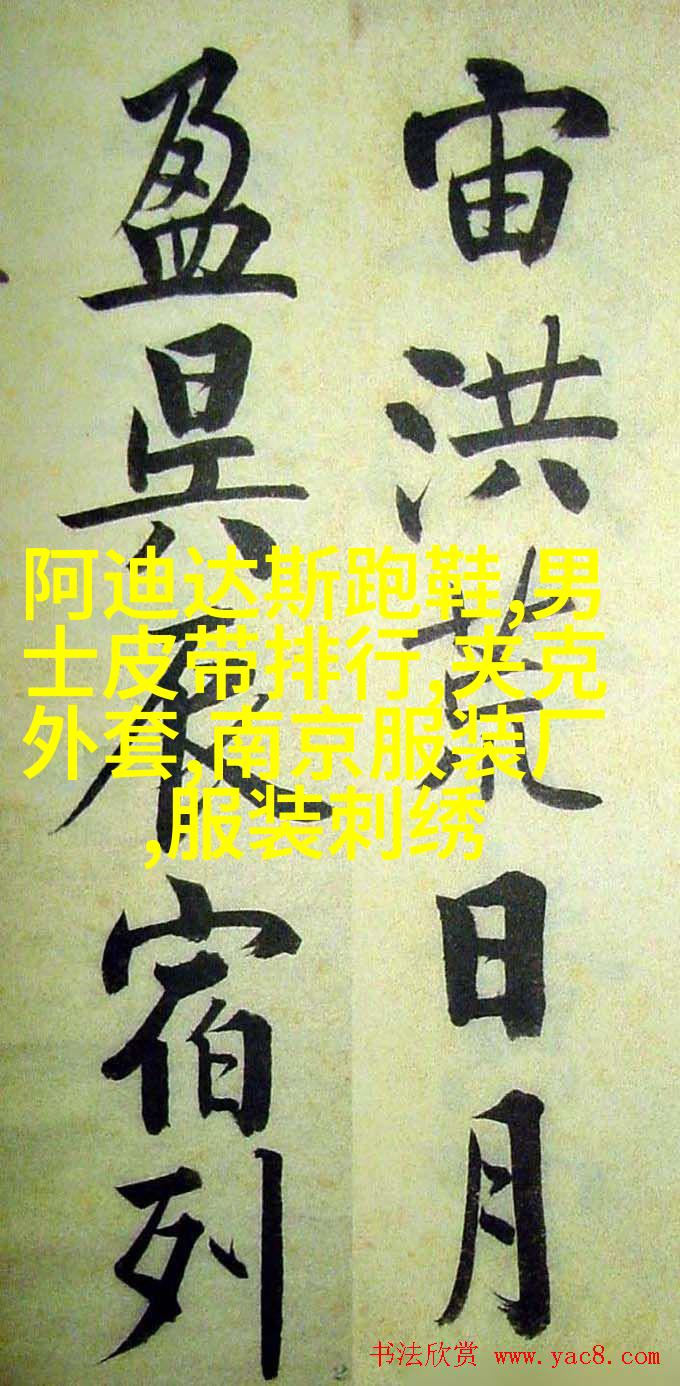 宙洪荒日月
盈昃辰宿列
阿迪达斯跑鞋,男
士皮带排行,夹克
外套,南京服装厂
,服装刺绣
2
书法欣赏 www.yac8.com